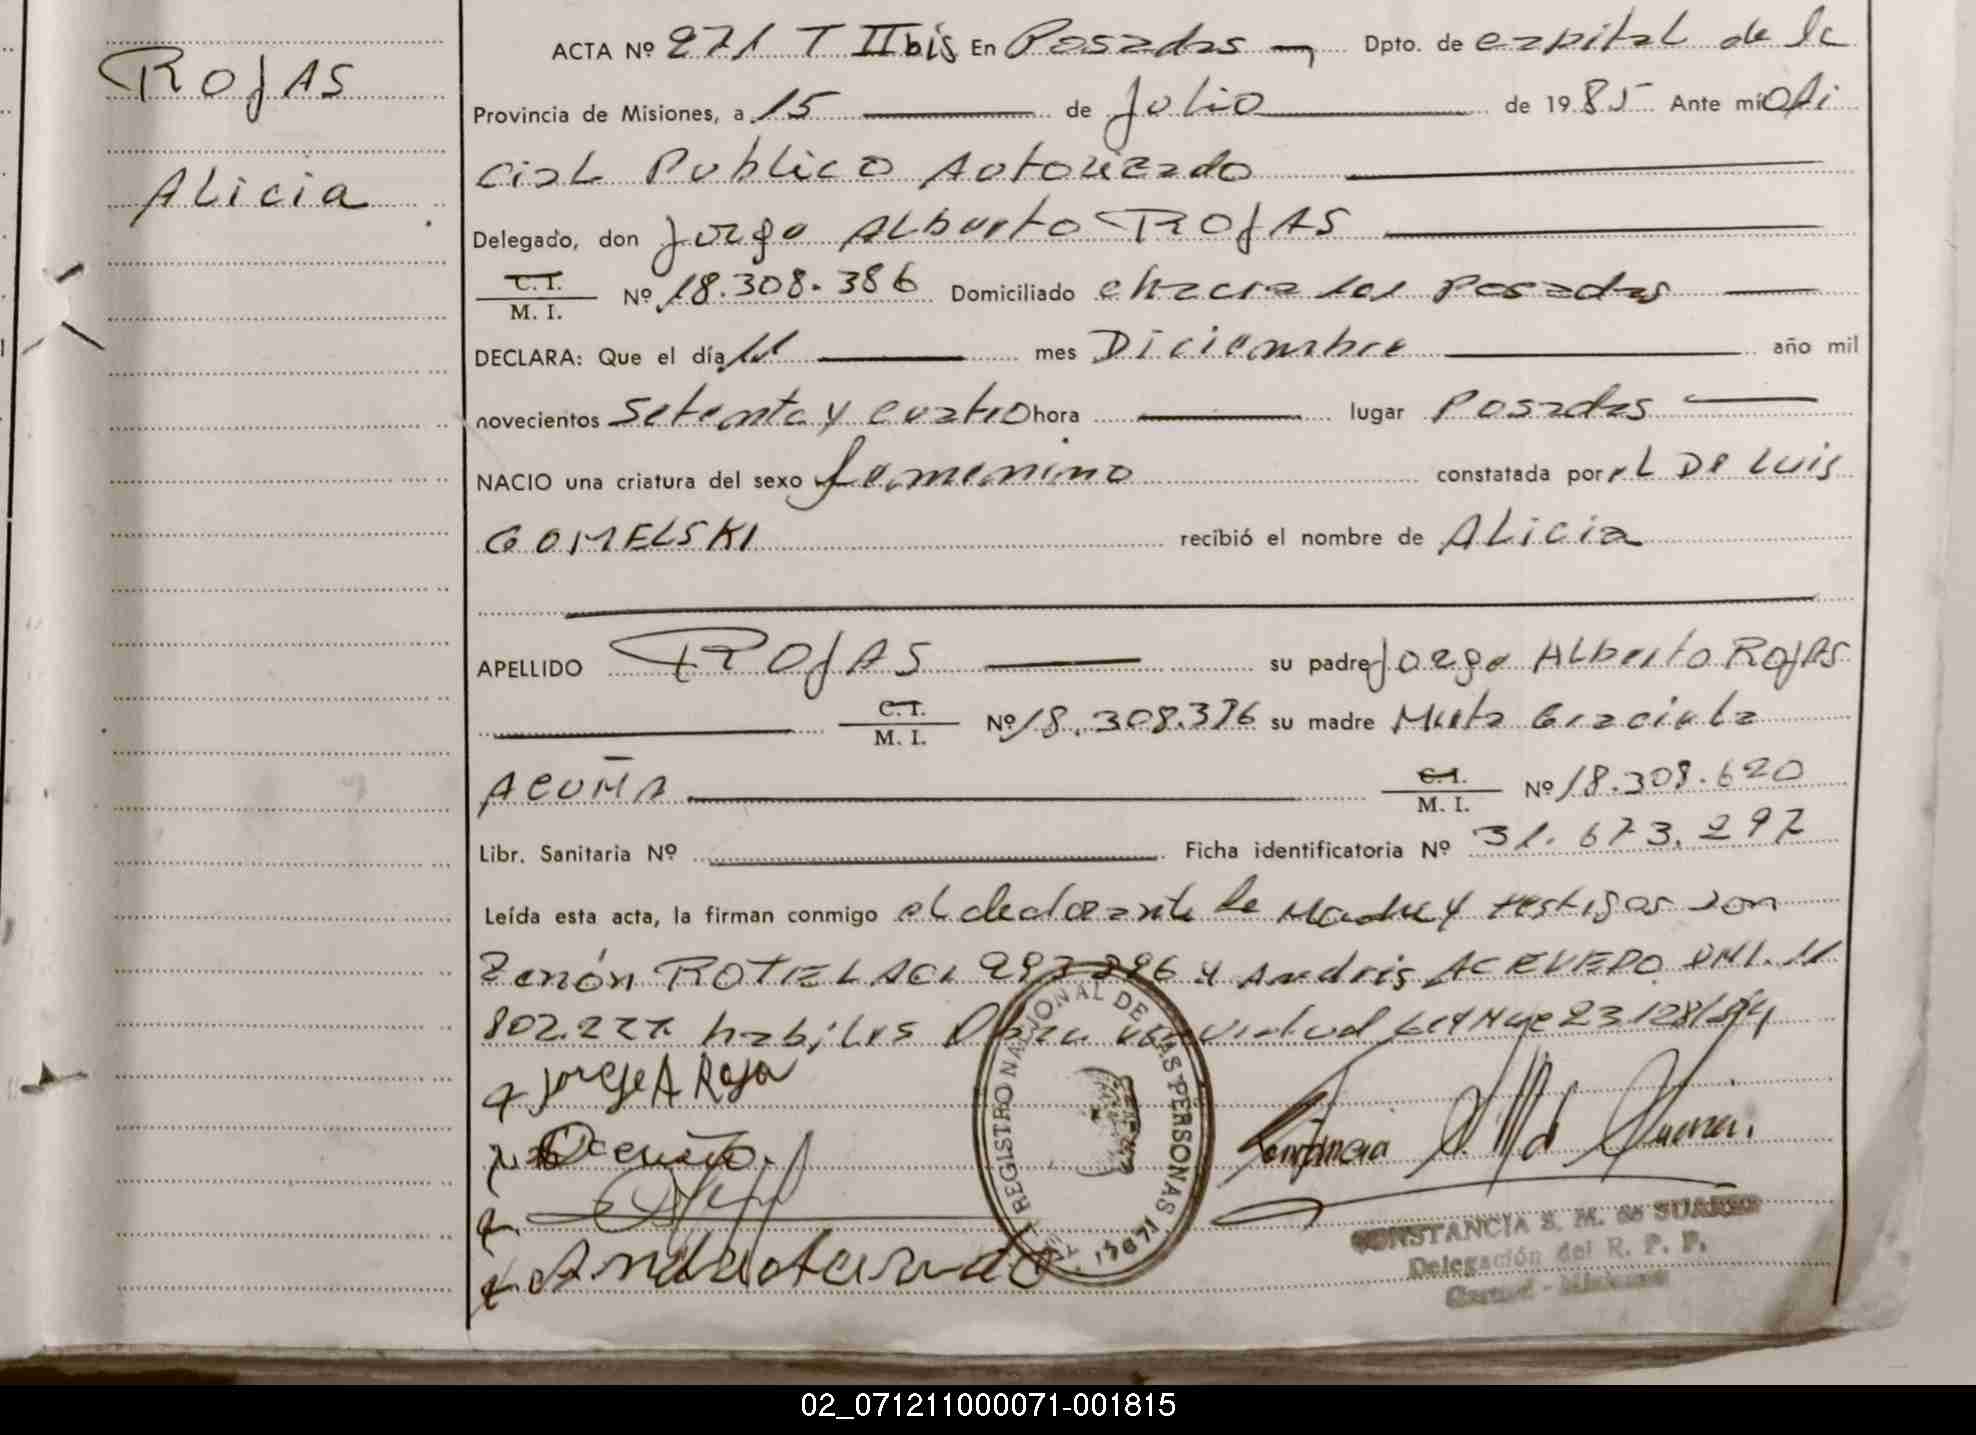 ROJAS
Alicia
ACTA Nº 271 T II bis En Posadas Dpto. de capital de la
Provincia de Misiones, a 15 de Julio de 1985 Ante mí Ofi
cial Publico Autorizado
Delegado, don Jorge Alberto ROJAS
C. I.
M. I. Nº 18.308.386 Domiciliado chacra 101 Posadas
DECLARA: Que el día 11 mes Diciembre año mil
novecientos setenta y cuatro hora lugar Posadas
NACIO una criatura del sexo femenino constatada por el DR LUIS
GOMELSKI recibió el nombre de Alicia
APELLIDO ROJAS su padre Jorge Alberto ROJAS
C. I.
M. I. Nº 18.308.376 su madre Mirta Graciela
ACUÑA C. I.
M. I. Nº 18.308.620
Libr. Sanitaria Nº Ficha identificatoria Nº 31.673.297
Leída esta acta, la firman conmigo el declarante la Madre y testigos son
Zenón ROTELA CI 293.296 y Andrés ACEVEDO DNI. 11
802.227 habiles Obra en virtud Ley Nº 23.128/84
Jorge A Roja
REGISTRO NACIONAL DE LAS PERSONAS
CONSTANCIA S. M. de SUAREZ
Delegación del R. P. P.
Garupá - Misiones
02_071211000071-001815